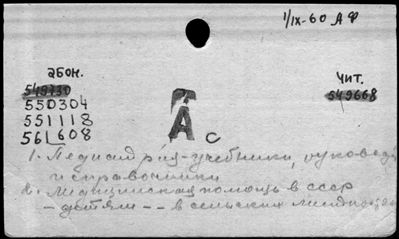 1/IX-60 АФ
абон.
чит.
549730
549668
550304
551118
561608
А с
1. Педиатрия - учебники, руковод.
и справочники
2. Медицинская помощь в СССР
- детям -- в сельских